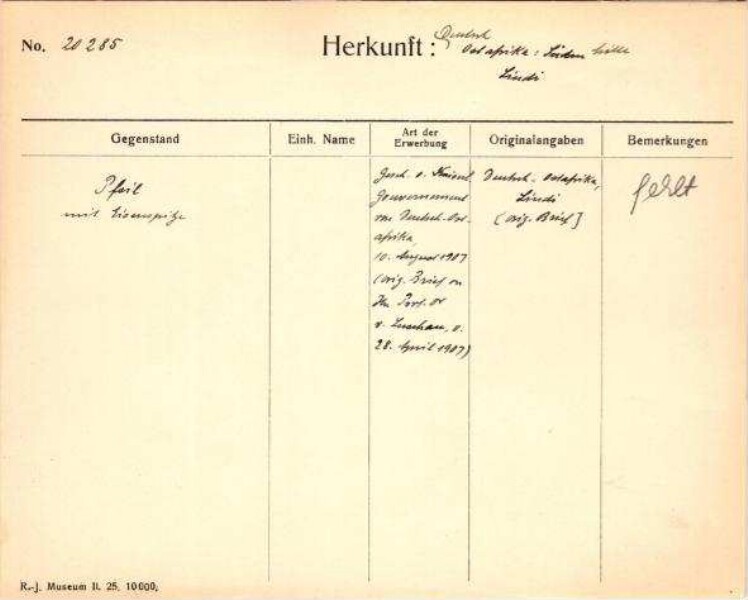 No. 20285
Herkunft: Deutsch
Ostafrika: Süden
Lindi
Gegenstand
Einh. Name
Art der
Erwerbung
Originalangaben
Bemerkungen
Pfeil
mit Eisenspitze
Gesch. v. Kaiserl.
Gouvernement
von Deutsch-Ost-
afrika,
10. August 1907
(orig. Brief an
Hn. Prof. Dr
v. Luschan, v.
28. April 1907)
Deutsch-Ostafrika,
Lindi
(orig. Brief]
fehlt
R.-J. Museum II. 25. 10000.